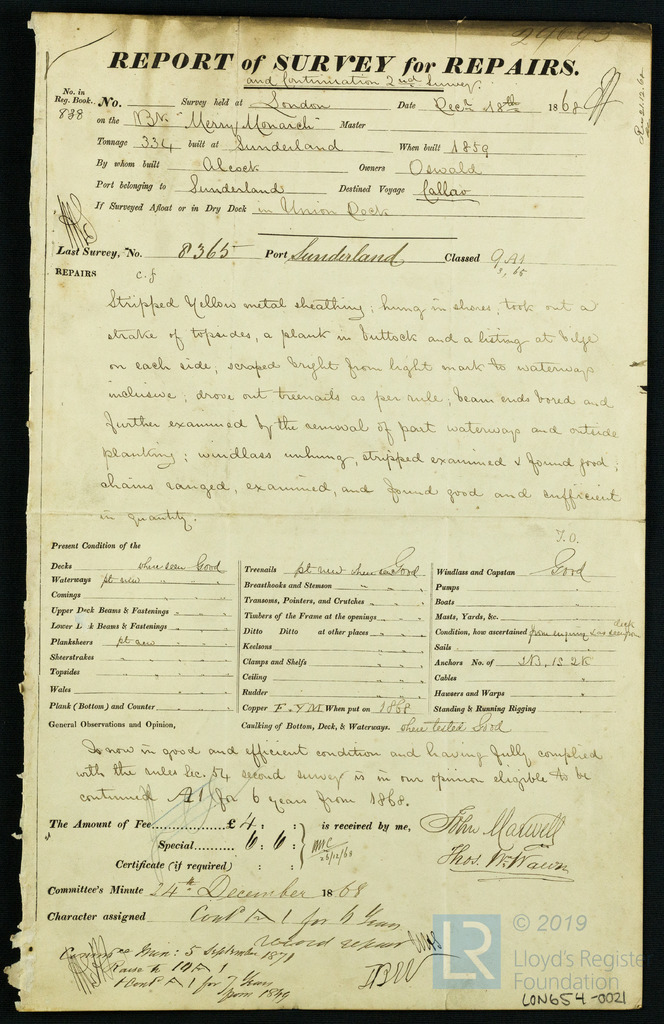 29693
REPORT of SURVEY for REPAIRS.
and Continuation 2nd Survey.
No. in Reg. Book. No. Survey held at London Date Decr 18th 1868
838 on the Bk "Merry Monarch" Master
Tonnage 334 built at Sunderland When built 1859
By whom built Alcock Owners Oswald
Port belonging to Sunderland Destined Voyage Callao
If Surveyed Afloat or in Dry Dock in Union Dock
Last Survey, No. 8365 Port Sunderland Classed 9 A1
3, 65
REPAIRS c.f
Stripped Yellow metal sheathing; hung in shores, took out a
strake of topsides, a plank in buttock and a listing at bilge
on each side; scraped bright from light mark to waterways
inclusive; drove out treenails as per rule; beam ends bored and
further examined by the removal of part waterways and outside
planking; windlass unhung, stripped examined & found good;
chains ranged, examined, and found good and sufficient
in quantity.
T.O.
Present Condition of the
Decks where seen Good
Waterways pt new " "
Comings " "
Upper Deck Beams & Fastenings " "
Lower Deck Beams & Fastenings " "
Planksheers pt new " "
Sheerstrakes " "
Topsides " "
Wales " "
Plank (Bottom) and Counter " "
Treenails pt new where seen Good
Breasthooks and Stemson " "
Transoms, Pointers, and Crutches " "
Timbers of the Frame at the openings " "
Ditto Ditto at other places " "
Keelsons " "
Clamps and Shelfs " "
Ceiling " "
Rudder " "
Copper F. YM When put on 1868
Windlass and Capstan Good
Pumps "
Boats "
Masts, Yards, &c. "
Condition, how ascertained from enquiry & as seen from deck
Sails "
Anchors No. of 3B, 1S 2K
Cables "
Hawsers and Warps "
Standing & Running Rigging "
General Observations and Opinion, Caulking of Bottom, Deck, & Waterways. where tested Good
Is now in good and efficient condition and having fully complied
with the rules Sec. 54 second survey is in our opinion eligible to be
continued A1 for 6 years from 1868.
The Amount of Fee £ 4 : : is received by me, John Maxwell
Special 6 : 6 : Thos. Wm Wawn
28/12/68
Certificate (if required) : :
Committee's Minute 24th December 1868
Character assigned Contd A 1 for 6 Years
record repair
Committee Min: 5 September 1871
Raise to 10 A 1
& Contd A 1 for 7 Years
from 1869
LR
© 2019
Lloyd's Register
Foundation
LON654-0021